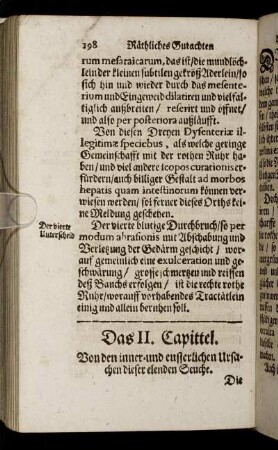 198 Räthliches Gutachten
rum mesaraicarum, das ist/die mundlöch-
lein der kleinen subtilen gekröß Aderlein/so
sich hin und wieder durch das mesente-
rium und Eingeweid dilatiren und vielfal-
tiglich außbreiten / reserirt und öffnet/
und also per posteriora außläufft.
Von diesen Dreyen Dysenteriæ il-
legitimæ speciebus, als welche geringe
Gemeinschafft mit der rothen Ruhr ha-
ben/ und viel andere scopos curationis er-
fürdern/auch billiger Gestalt ad morbos
hepatis quam intestinorum können ver-
wiesen werden/ sol ferner dieses Orths kei-
ne Meldung geschehen.
Der vierte
Unterscheid
Der vierte blutige Durchbruch/so per
modum abrasionis mit Abschabung und
Verletzung der Gedärm geschicht / wor-
auf gemeinlich eine exulceration und ge-
schwärung / grosse schmertzen und reissen
deß Bauchs erfolgen/ ist die rechte rothe
Ruhr/worauff vorhabendes Tractätlein
einig und allein beruhen soll.
Das II. Capittel.
Von den inner-und eusserlichen Ursa-
chen dieser elenden Seuche.
Die